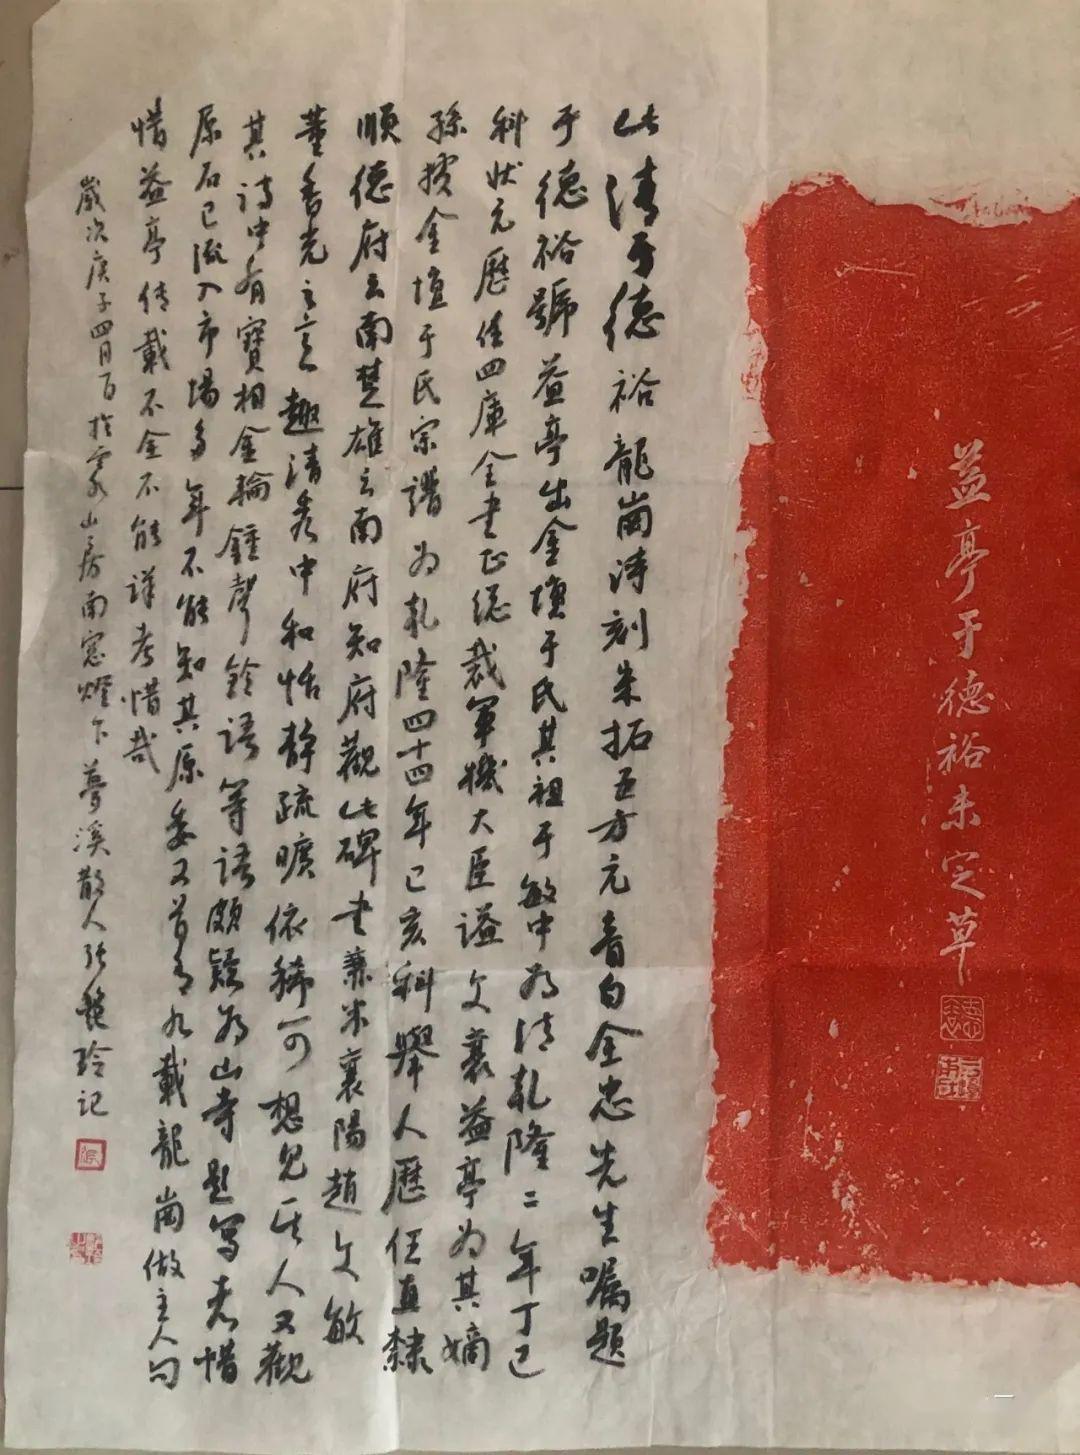 益亭于德裕未定草
德裕
此清于德裕龍崗詩刻朱拓五方元音白全忠先生嘱題
于德裕號益亭出金壇于氏其祖于敏中為清乾隆二年丁巳
科状元歷任四庫全書正總裁軍機大臣謚文襄益亭為其嫡
孫按金壇于氏宗譜為乾隆四十四年己亥科舉人歷任直隸
順德府云南楚雄云南府知府觀此碑書兼米襄陽趙文敏
董香光之意趣清秀中和恬静疏曠依稀可想見其人又觀
其詩中有寶相金輪鍾聲鈴語等語頗疑為山寺題寫者惜
原石已流入市場多年不能知其原委又首有九載龍崗做主人句
惜益亭傳載不全不能詳考惜哉
歲次庚子四月百於山房南窓燈下夢溪散人張艷玲記
張